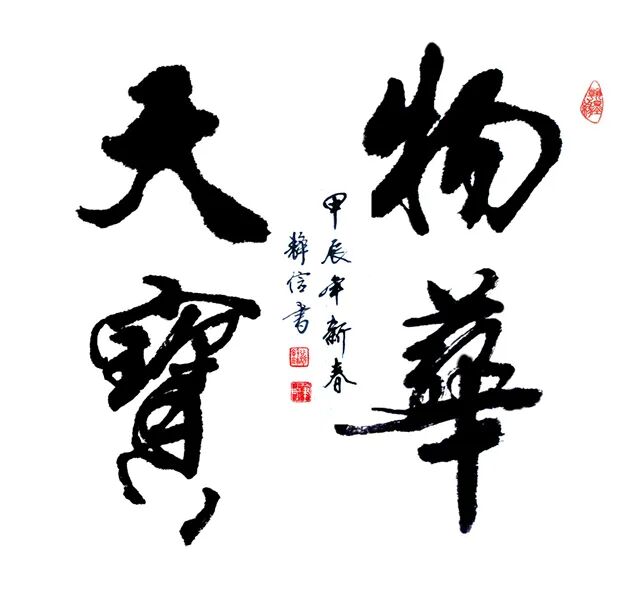 物華
天寶
甲辰年新春
信書